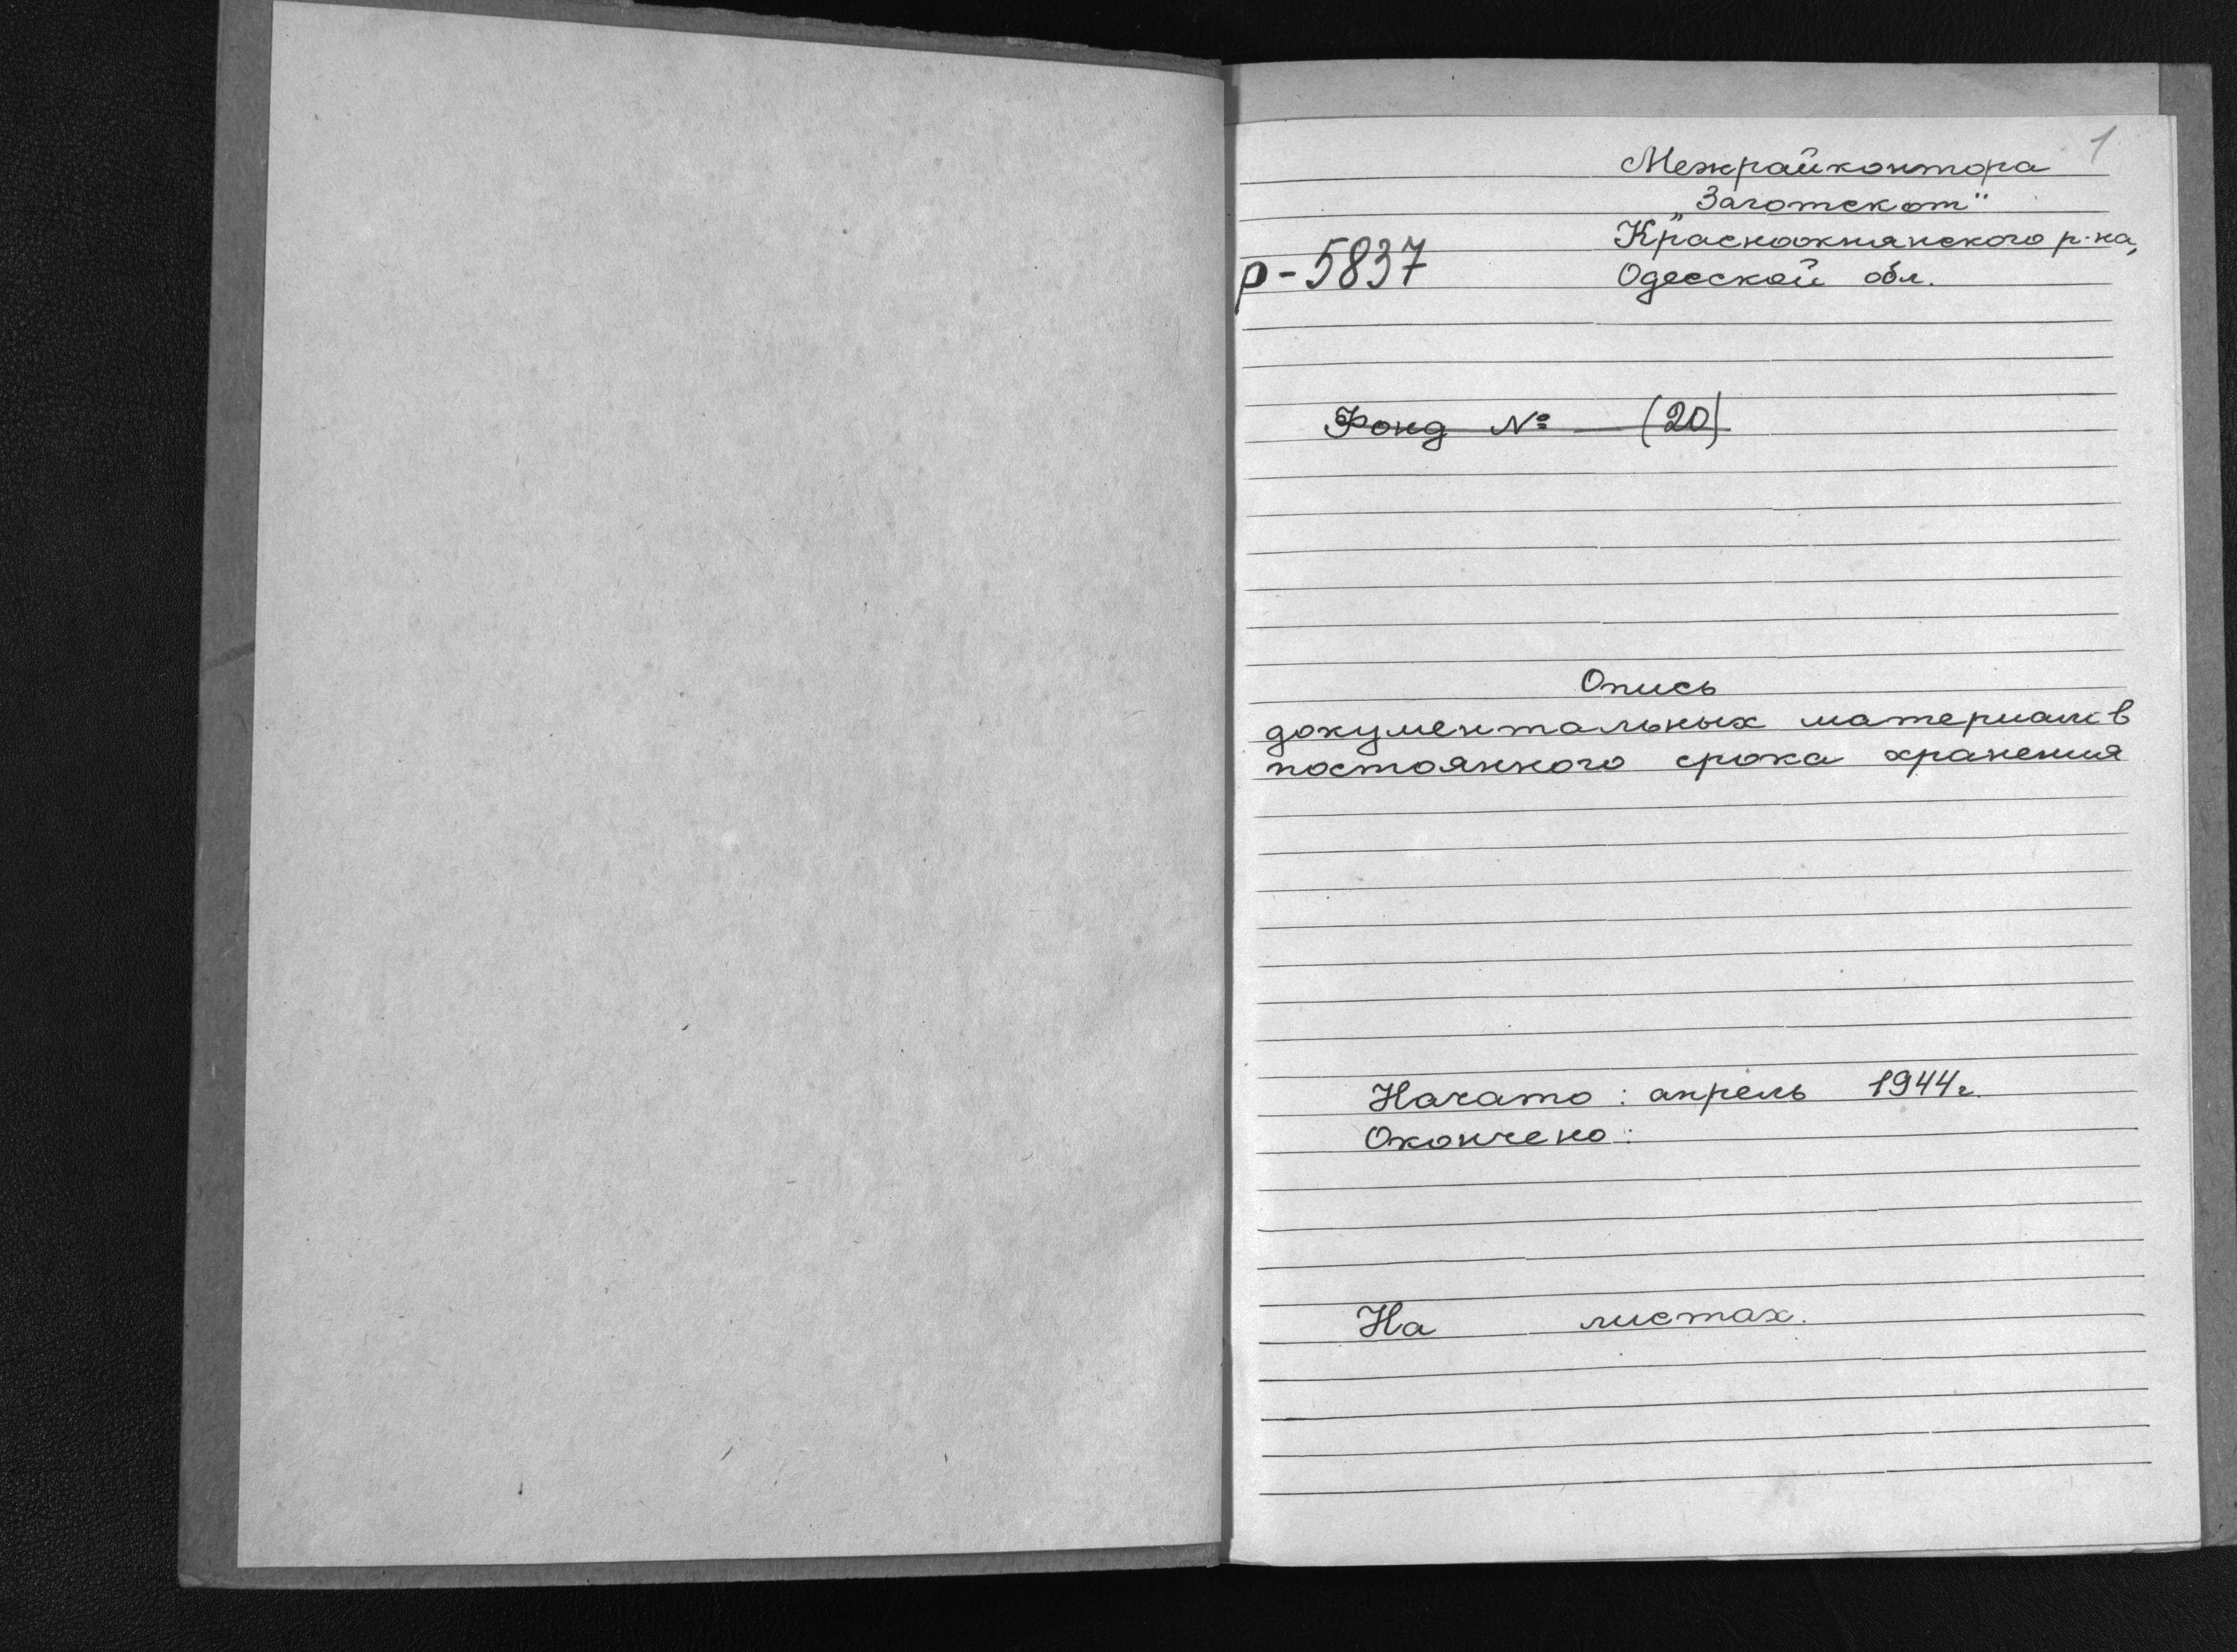 1
Межрайконтора
„Заготскот"
Красноокнянского р-на,
р-5837
Одесской обл.
Фонд № — (20)
Опись
документальных материалов
постоянного срока хранения
Начато: апрель 1944г.
Окончено:
На листах.